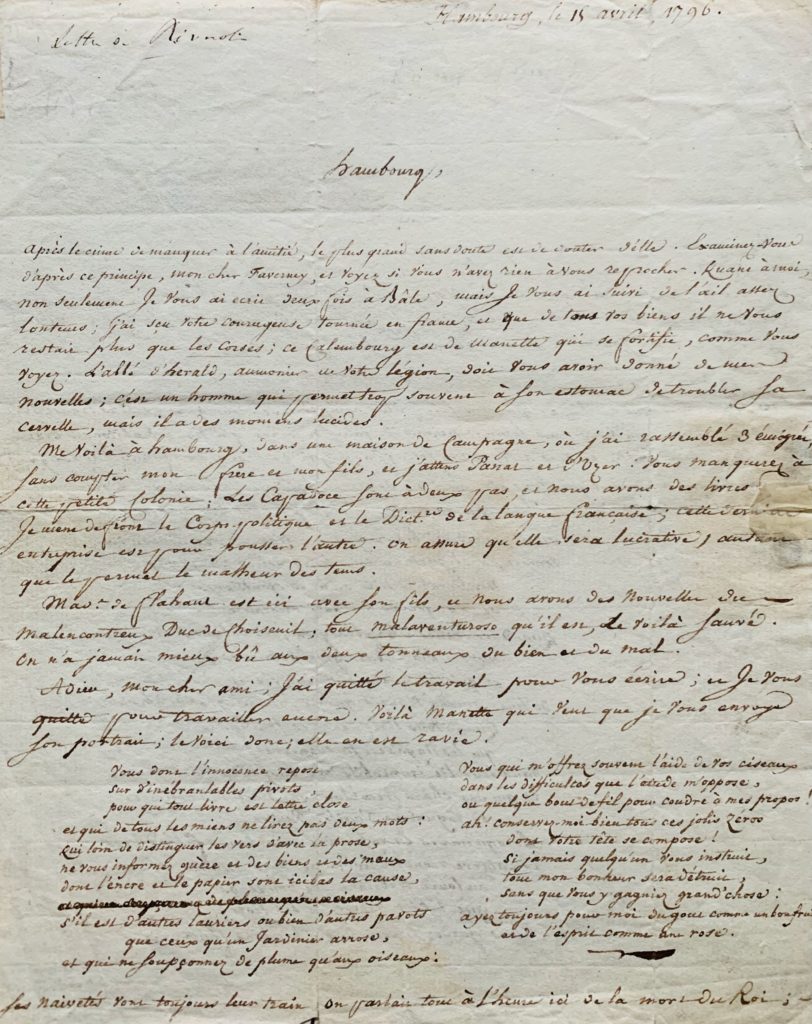 Hambourg, le 15 avril, 1796.
Lettre de Rivarol
hambourg,
Après le crime de manquer à l'amitié, le plus grand sans doute est de douter d'elle. Examinez-vous
d'après ce principe, mon cher Taverney, et voyez si vous n'avez rien à vous reprocher. Quant à moi,
non seulement je vous ai ecrit deux fois à Bâle, mais je vous ai suivi de l'œil assez
loutems; j'ai seu votre courageuse tournée en france, et que de tous vos biens il ne vous
restait plus que les corses; ce Calembourg est de Manette qui se fortifie, comme vous
voyez. L'abbé d'herald, aumonier de votre légion, doit vous avoir donné de mes
nouvelles; c'est un homme qui permet trop souvent à son estomac de troubler sa
cervelle, mais il a des momens lucides.
Me voilà à hambourg, dans une maison de Campagne, où j'ai rassemblé 3 émigrés,
sans compter mon frère et mon fils, et j'attens Panat et d'Uzer. Vous manquerez à
cette petite Colonie; Les Capadoce sont à deux pas, et nous avons des livres
Je mène de front le Corps politique et le Dict.re de la langue française; cette dernière
entreprise est pour pousser l'autre. On assure qu'elle sera lucrative, autant
que le permet le malheur des tems.
Mad.e de flahaut est ici avec son fils, et nous avons des nouvelles du
malencontreux Duc de choiseuil, tout malaventuroso qu'il est, le voilà sauvé.
On n'a jamais mieux bû aux deux tonneaux du bien et du mal.
Adieu, mon cher ami; j'ai quitté le travail pour vous écrire; et je vous
quitte pour travailler encore. Voilà Manette qui veut que je vous envoye
son portrait; le voici donc; elle en est ravie.
Vous dont l'innocence repose
sur d'inébranlables pivots,
pour qui tout livre est lettre close
et qui de tous les miens ne lirez pas deux mots:
qui loin de distinguer les vers d'avec la prose,
ne vous informez guère et des biens et des maux
dont l'encre et le papier sont icibas la cause,
s'il est d'autres lauriers ou bien d'autres pavots
que ceux qu'un Jardinier arrose,
et qui ne soupçonnez de plume qu'aux oiseaux:
Vous qui m'offrez souvent l'aide de vos ciseaux
dans les difficultés que l'étude m'oppose,
ou quelque bout de fil pour coudre à mes propos!
ah! conservez-moi bien tous ces jolis zéros
dont votre tête se compose!
si jamais quelqu'un vous instruit,
tout mon bonheur sera détruit,
sans que vous y gagniez grand'chose:
ayez toujours pour moi du gout comme un bon fruit
et de l'esprit comme une rose.
ses naivetés vont toujours leur train. On parlait tout à l'heure ici de la mort du Roi;